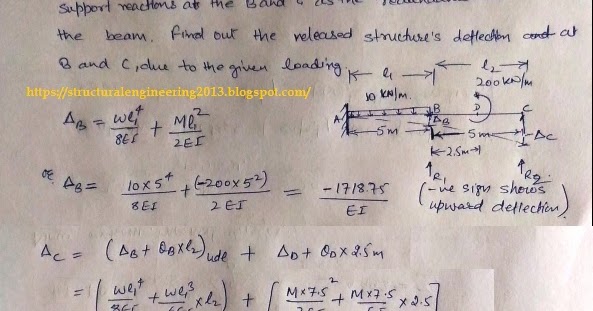 support reactions at the B and C as the
the beam. Find out the released structure's deflection and at
B and C, due to the given loading.
https://structuralengineering2013.blogspot.com/
l₁ l₂
10 KN/m. 200 KN/m.
A B D C
ΔB ΔC
5m 5m
2.5m
R₁ R₂
ΔB = wl₁⁴/8EI + Ml₁²/2EI
or ΔB = 10×5⁴/8EI + (-200×5²)/2EI = -1718.75/EI
(-ve sign shows
upward deflection)
ΔC = (ΔB + θB×l₂)udl + ΔD + θD×2.5m
= (wl₁⁴/8EI + wl₁³ ×l₂) + [M×7.5² + M×7.5 ×2.5]